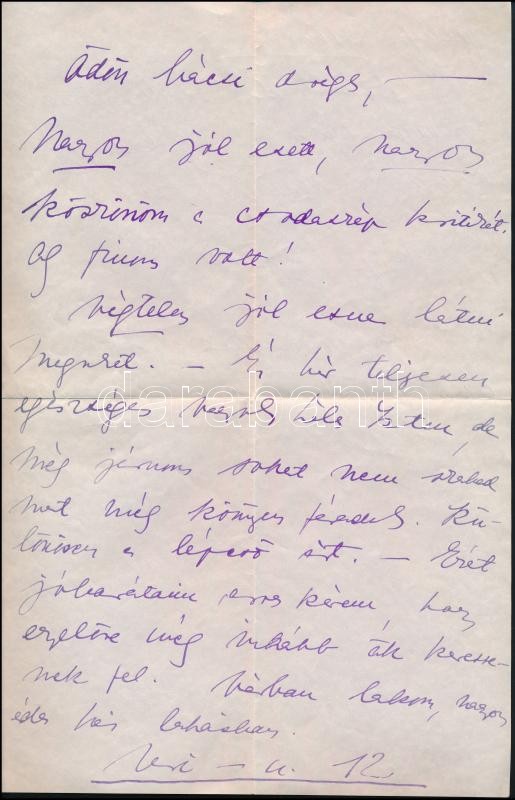 Ödön bácsi drága,
Nagyon jól esett, Nagyon
köszönöm a csodaszép kritikát.
Oly finom volt!
Végtelen jól esne látni
Magukat. – Én bár teljesen
egészséges vagyok hála Isten, de
még járnom sokat nem szabad
mert még könnyen fáradok. Kü-
lönösen a lépcső árt. – Ezért
jóbarátaim arra kérem, hogy
egyelőre még inkább ők keresse-
nek fel. Várban lakom, nagyon
édes kis lakásban.
Úri – u. 12.
darabanth